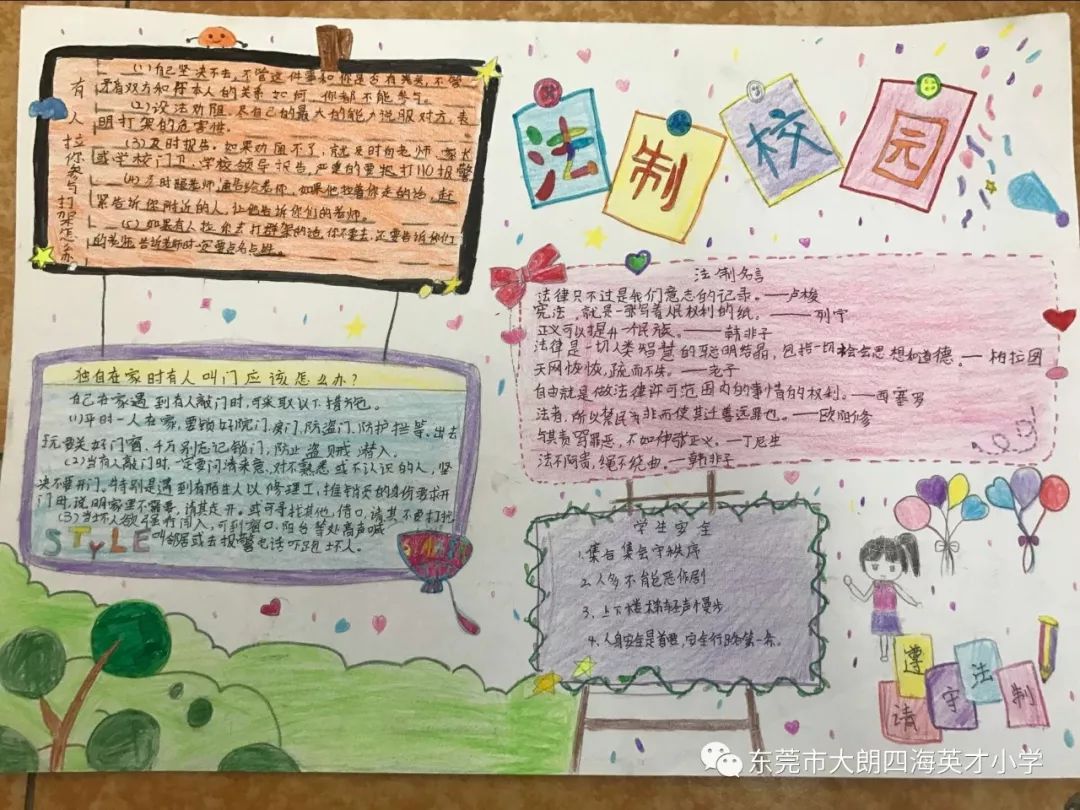 法制校园
有人拉你参与打架怎么办
(1)自己坚决不去，不管这件事和你是否有关系，不管
矛盾双方和你本人的关系如何，你都不能参与。
(2)设法劝阻，尽自己的最大的能力说服对方，表
明打架的危害性。
(3)及时报告。如果劝阻不了，就及时向老师、家长
或学校门卫、学校领导报告，严重的要拨打110报警
老师，如果他拉着你走的话，赶
紧告诉你附近的人，让他告诉你们的老师。
(5)如果有人拉你去打群架的话，你不要去，还要告诉你们
的老师，告诉老师时一定要点名点姓。
法制名言
法律只不过是我们意志的记录。——卢梭
宪法，就是一张写着人民权利的纸。——列宁
正义可以提升一个民族。——韩非子
法律是一切人类智慧的聪明结晶，包括一切社会思想和道德。——柏拉图
天网恢恢，疏而不失。——老子
自由就是做法律许可范围内的事情的权利。——西塞罗
法者，所以禁民为非而使其迁善远罪也。——欧阳修
与其责骂罪恶，不如伸张正义。—丁尼生
法不阿贵，绳不绕曲。—韩非子
独自在家时有人叫门应该怎么办？
自己在家遇到有敲门时，可采取以下措施。
(1)平时一人在家，要锁好院门、房门、防盗门、防护栏等。出去
玩要关好门窗，千万别忘记锁门，防止盗贼潜入。
(2)当有人敲门时，一定要问清来意，对不熟悉或不认识的人，坚
决不要开门。特别是遇到有陌生人以修理工、推销员的身份要求开
门时，说明家里不需要，请其走开。或可寻找其他借口，请其不要打扰
(3)当坏人欲强行闯入，可到窗口、阳台等处高声喊
叫邻居或去报警电话吓跑坏人。
STYLE
学生安全
1.集合集会守秩序
2.人多不有起恶作剧
3、上下楼梯轻声慢步
4.人身安全是首要，安全行路第一条。
请遵守法制
东莞市大朗四海英才小学